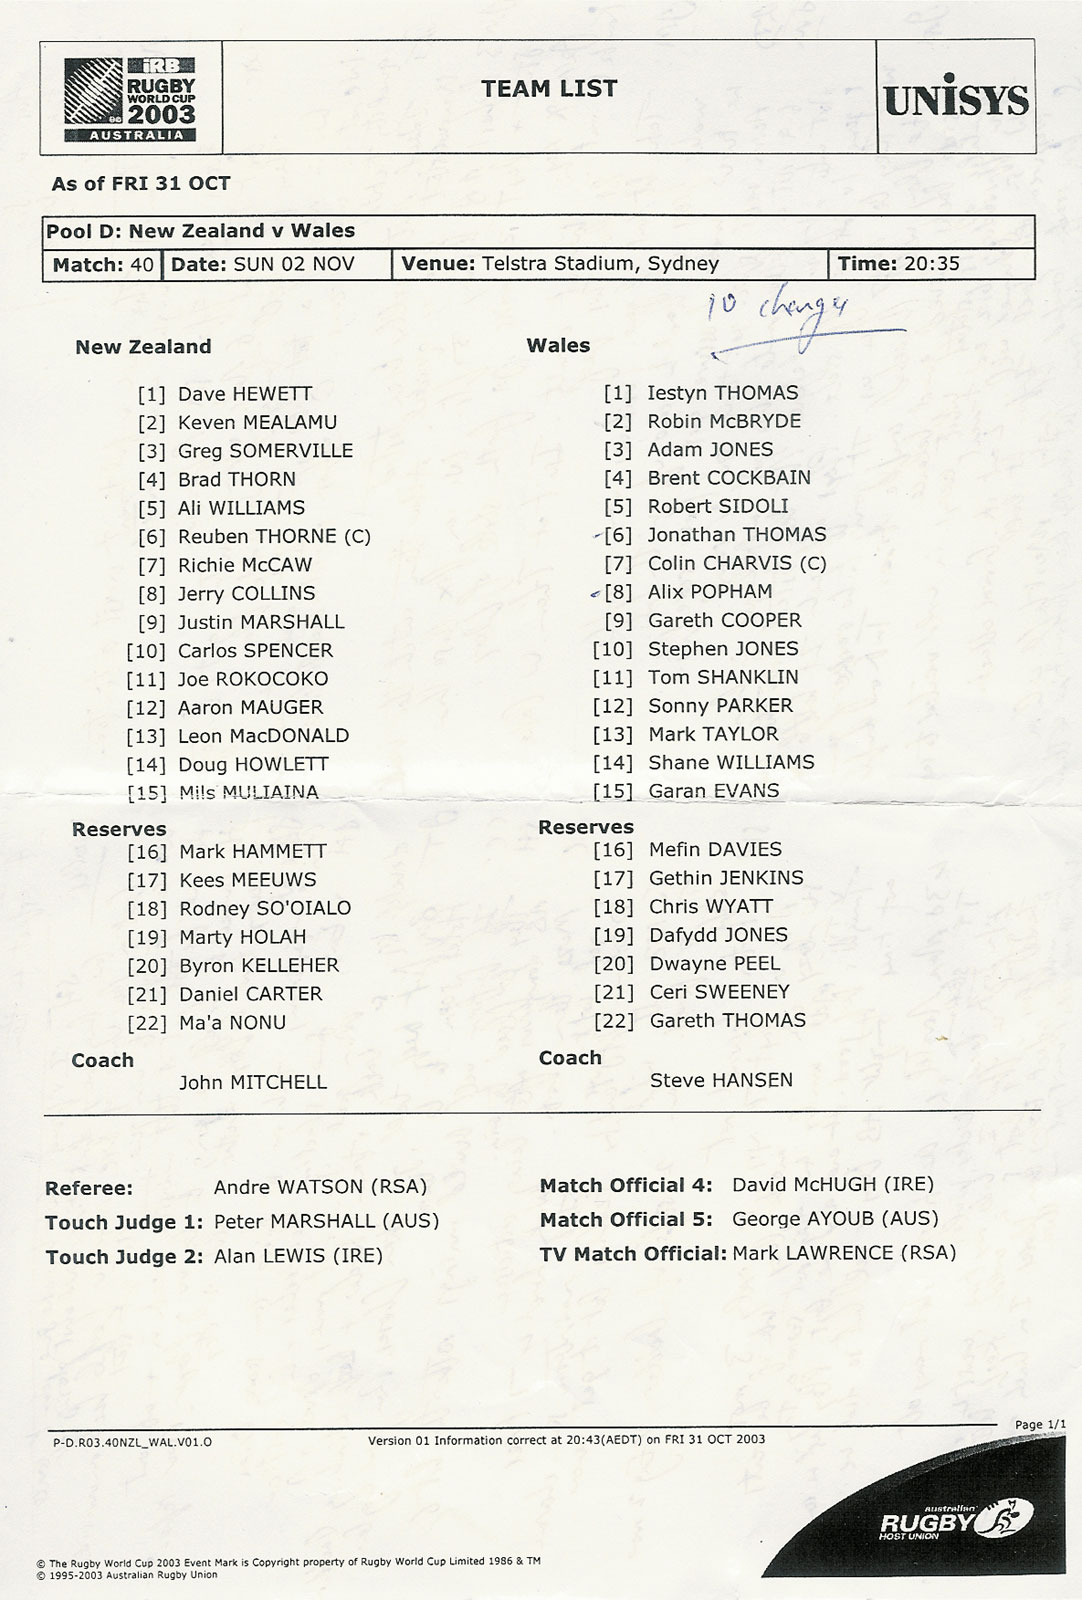 iRB
RUGBY
WORLD CUP
2003
AUSTRALIA
TEAM LIST
UNISYS
As of FRI 31 OCT
Pool D: New Zealand v Wales
Match: 40 Date: SUN 02 NOV Venue: Telstra Stadium, Sydney Time: 20:35
10 changes
New Zealand
[1] Dave HEWETT
[2] Keven MEALAMU
[3] Greg SOMERVILLE
[4] Brad THORN
[5] Ali WILLIAMS
[6] Reuben THORNE (C)
[7] Richie McCAW
[8] Jerry COLLINS
[9] Justin MARSHALL
[10] Carlos SPENCER
[11] Joe ROKOCOKO
[12] Aaron MAUGER
[13] Leon MacDONALD
[14] Doug HOWLETT
[15] Mils MULIAINA
Reserves
[16] Mark HAMMETT
[17] Kees MEEUWS
[18] Rodney SO'OIALO
[19] Marty HOLAH
[20] Byron KELLEHER
[21] Daniel CARTER
[22] Ma'a NONU
Coach
John MITCHELL
Wales
[1] Iestyn THOMAS
[2] Robin McBRYDE
[3] Adam JONES
[4] Brent COCKBAIN
[5] Robert SIDOLI
[6] Jonathan THOMAS
[7] Colin CHARVIS (C)
[8] Alix POPHAM
[9] Gareth COOPER
[10] Stephen JONES
[11] Tom SHANKLIN
[12] Sonny PARKER
[13] Mark TAYLOR
[14] Shane WILLIAMS
[15] Garan EVANS
Reserves
[16] Mefin DAVIES
[17] Gethin JENKINS
[18] Chris WYATT
[19] Dafydd JONES
[20] Dwayne PEEL
[21] Ceri SWEENEY
[22] Gareth THOMAS
Coach
Steve HANSEN
Referee: Andre WATSON (RSA)
Touch Judge 1: Peter MARSHALL (AUS)
Touch Judge 2: Alan LEWIS (IRE)
Match Official 4: David McHUGH (IRE)
Match Official 5: George AYOUB (AUS)
TV Match Official: Mark LAWRENCE (RSA)
Page 1/1
P-D.R03.40NZL_WAL.V01.O
Version 01 Information correct at 20:43(AEDT) on FRI 31 OCT 2003
australian
RUGBY
HOST UNION
© The Rugby World Cup 2003 Event Mark is Copyright property of Rugby World Cup Limited 1986 & TM
© 1995-2003 Australian Rugby Union